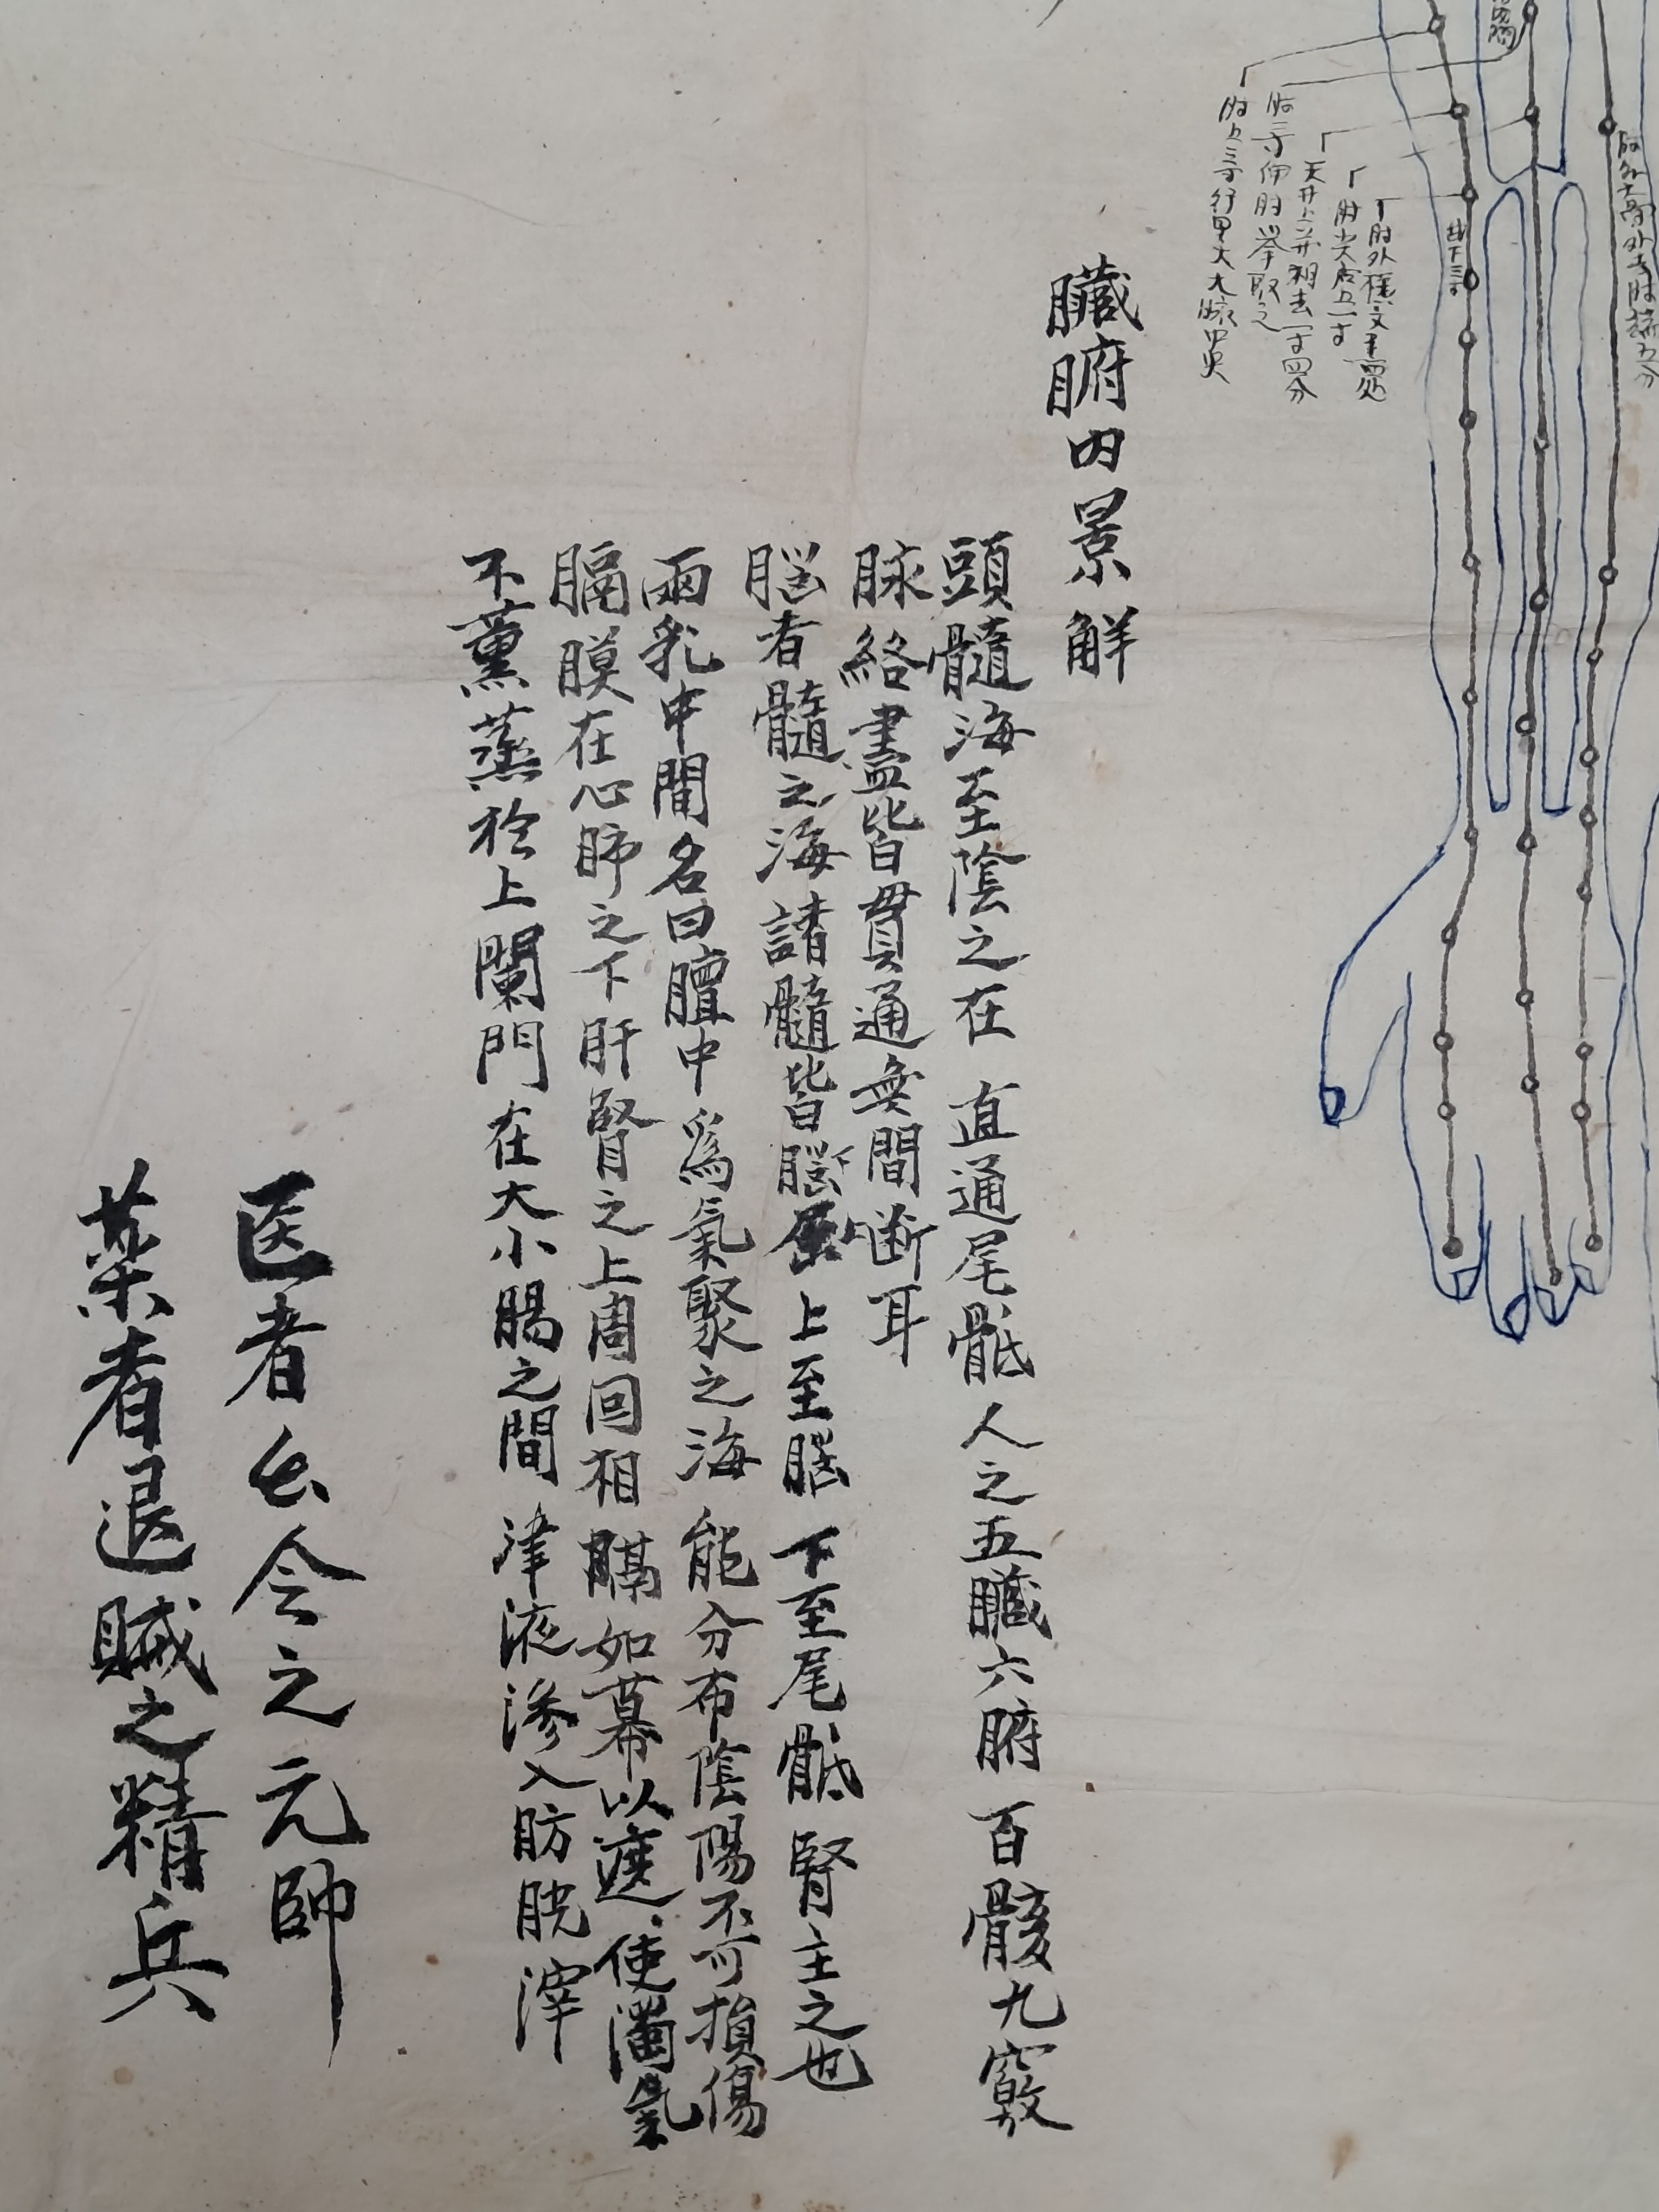 肘外大骨外去肘䯒五分
井下三寸
肘外橫文盡處
肘尖后上一寸
天井上并相去一寸四分
肘三寸伸肘舉取之
肘上三寸行里大大脉中央
臟腑内景解
頭髓海至陰之在 直通尾骶人之五臟六腑 百骸九竅
脉絡盡皆貫通無間断耳
脳者髓之海諸髓皆脳屬上至脳 下至尾骶 腎主之也
兩乳中間名曰膻中爲氣聚之海 能分布陰陽不可損傷
膈膜在心肺之下肝腎之上周回相膈如幕以遮使濁氣
不薰蒸於上闌門在大小腸之間 津液滲入肪胱滓
医者 令之元帥
菜者退賊之精兵